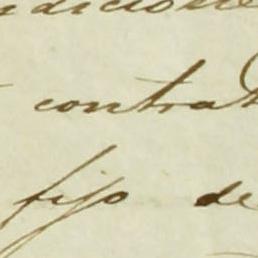 ndicione
contrat
fijo de